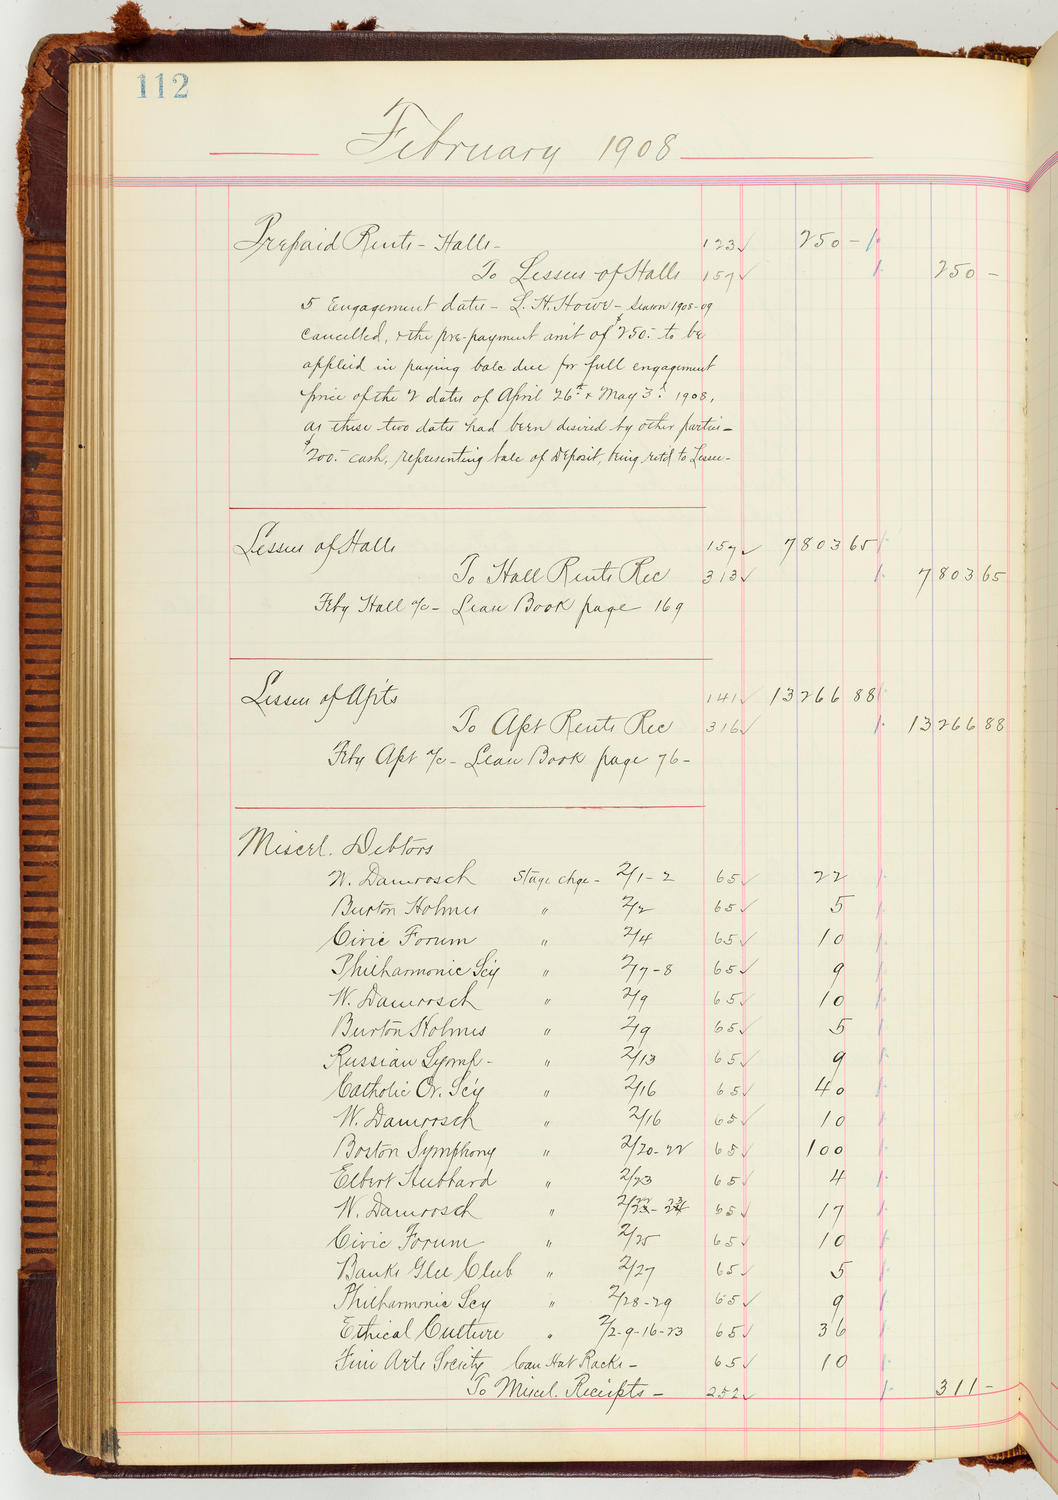 112
February 1908
Prepaid Rents - Halls - 123 250 -
To Lessees of Halls 157 250 -
5 Engagement dates - L. H. Howe - Season 1908-09
cancelled, & the pre-payment amt of $250.- to be
applied in paying balc due for full engagement
price of the 2 dates of April 26th & May 3d. 1908,
as these two dates had been desired by other parties -
$200.- cash, representing balc of Deposit, being retd to Lessee -
Lessees of Halls 157 7803 65
To Hall Rents Rec 313 7803 65
Feby Hall a/c - Lease Book page 169
Lessees of Apts 141 13266 88
To Apt Rents Rec 316 13266 88
Feby Apt a/c - Lease Book page 76 -
Miscel. Debtors
W. Damrosch Stage chge - 2/1-2 65 22
Burton Holmes " 2/2 65 5
Civic Forum " 2/4 65 10
Philharmonic Sc'y " 2/7-8 65 9
W. Damrosch " 2/9 65 10
Burton Holmes " 2/9 65 5
Russian Symp - " 2/13 65 9
Catholic Or. Sc'y " 2/16 65 40
W. Damrosch " 2/16 65 10
Boston Symphony " 2/20-22 65 100
Elbert Hubbard " 2/23 65 4
W. Damrosch " 65 17
Civic Forum " 2/25 65 10
Banks Glee Club " 2/27 65 5
Philharmonic Scy " 2/28-29 65 9
Ethical Culture " 2/2-9-16-23 65 36
Fine Arts Society Loan Hat Racks - 65 10
To Miscel. Receipts - 252 311 -